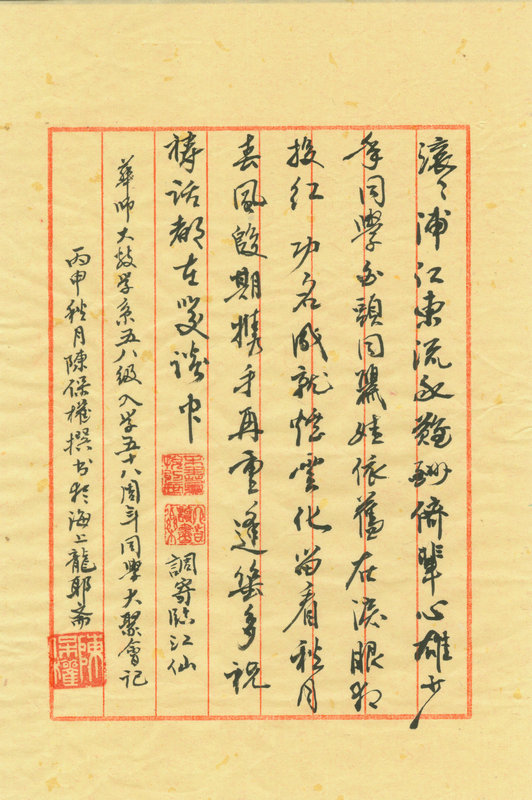 滾〻浦江東流水難酬儕輩心雄少
年同學白頭同麗娃依舊在淚眼
红功名成就煙雲化留看秋月
春風殷期攜手再重逢多祝
禱話都在笑談中
調寄臨江仙
華師大数学系五八級入学五十八周年同學大聚會記
丙申秋月陳保權撰书於海上龍耶齋
陳保權